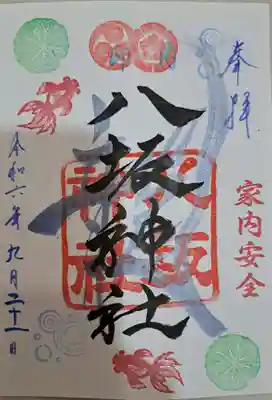 奉拝
八坂神社
八坂
神社
家内安全
令和六年九月二十一日